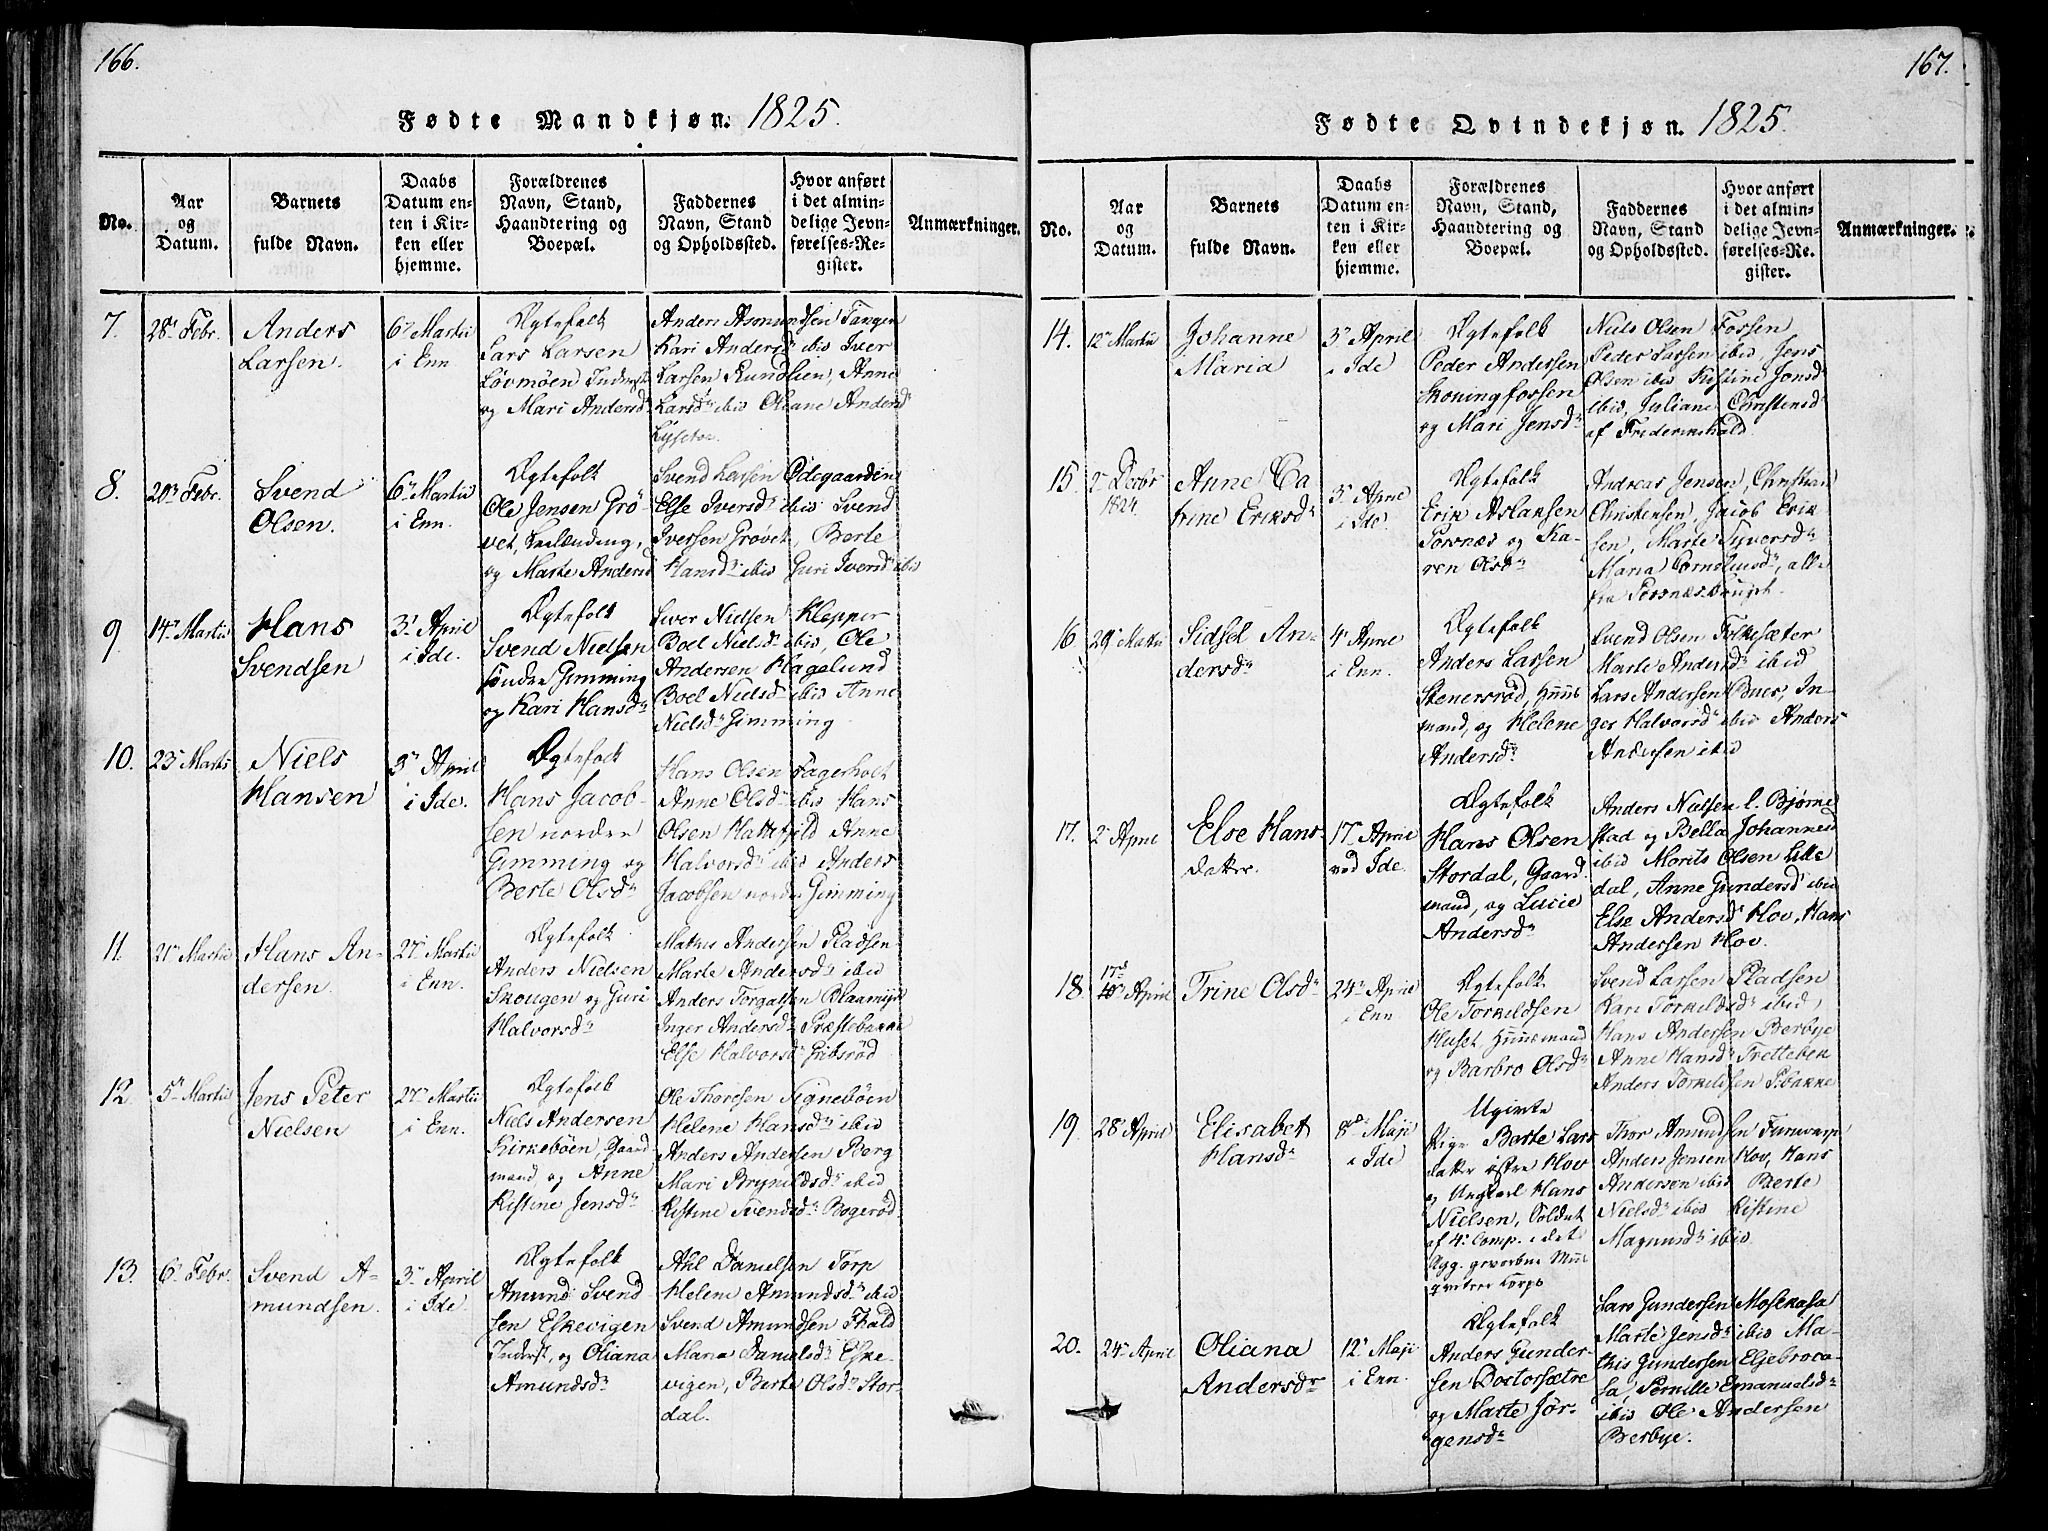 166.
Fødte Mandkjøn. 1825.
No.
Aar
og
Datum.
Barnets
fulde Navn.
Daabs
Datum en-
ten i Kir-
ken eller
hjemme.
Forældrenes
Navn, Stand,
Haandtering og
Boepæl.
Faddernes
Navn, Stand
og Opholdssted.
Hvor anført
i det almin-
delige Jevn-
førelses-Re-
gister.
Anmærkninger.
7.
28n Febr.
Anders
Larsen.
6n Martii
i Enn
Ægtefolk
Lars Larsen
Løvmøen Inderst
og Mari Andersdr
Anders Asmundsen Tangen
Kari Andersdr ibid Iver
Larsen Rundlien, Anne
Larsdr ibid Oliane Andersdr
8.
20n Febr.
Svend
Olsen.
6n Martii
i Enn.
Ægtefolk
Ole Jensen Grø-
vet,
og Marte Andersd
Svend Larsen Ødegaarden
Else Iversdr ibid Svend
Iversen Grøvet, Berte
Hansdr ibid Guri Iversdr ibid
9
14n Martii
Hans
Svendsen
3n April
i Ide.
Ægtefolk
Svend Nielsen
søndre Gimming
og Kari Hansdr
Iver Nielsen Klepper
Boel Nielsdr ibid, Ole
Andersen Hagelund
Boel Nielsd ibid Anne
Nielsdr Gimming
10.
23n Marts
Niels
Hansen
3n April
i Ide.
Ægtefolk
Hans Jacob-
sen nordre
Gimming og
Berte Olsdr
Hans Olsen Fagerholt
Anne Olsdr ibid Hans
Olsen Hattefjeld Anne
Halvorsdr ibid Anders
Jacobsen nordre Gimming
11.
21n Martii
Hans An-
dersen.
27n Martii
i Enn.
Ægtefolk
Anders Nielsen
Skougen og Guri
Halvorsdr
Mathis Andersen Pladsen
Marte Andersdr ibid
Anders Torgalsen Blaamyr
Inger Andersdr Præstebakke
Else Halvorsdr Gribsrød
12
5n Martii
Jens Peter
Nielsen
27n Martii
i Enn.
Ægtefolk
Niels Andersen
Kirkebøen, Gaard
mand, og Anne
Kistine Jensdr
Ole Thoresen Signebøen
Helene Hansdr ibid
Anders Andersen Berg
Mari Brynildsdr ibid
Kistine Svendsdr Bøgerød
13.
6n Febr.
Svend A-
mundsen.
3n April
i Ide.
Ægtefolk
Amund Svend-
sen Eskevigen
Inderst, og Oliana
Amundsdr
Axl Danielsen Torp
Helene Amundsdr ibid
Svend Amundsen Fhald
Maria Danielsdr Eske-
vigen, Berte Olsdr Stor-
dal.
167.
Fødte Qvindekjøn. 1825.
No.
Aar
og
Datum.
Barnets
fulde Navn.
Daabs
Datum en-
ten i Kir-
ken eller
hjemme.
Forældrenes
Navn, Stand,
Haandtering og
Boepæl.
Faddernes
Navn, Stand
og Opholdssted.
Hvor anført
i det almin-
delige Jevn-
førelses-Re-
gister.
Anmærkninger.
14.
12n Martii
Johanne
Maria
3n April
i Ide
Ægtefolk
Peder Andersen
Skoningfossen
og Mari Jensdr
Niels Olsen Fossen
Peder Larsen ibid, Jens
Olsen ibid Kistine Jonsdr
ibid, Juliane Christensdr
af Friderikshald
15
2n Decbr
1824.
Anne Ca
trine Eriksdr
3n April
i Ide.
Ægtefolk
Erik Aslaksen
Porsnæs og Ka-
ren Olsdr
Andreas Jensen, Christian
Christensen, Jacob Erik
sen, Marte Syversdr
Maria Corneliusdr, alle
fra Porsnæsbruget.
16
29n Martii
Sidsel An-
dersdr
4n April
i Enn.
Ægtefolk
Anders Larsen
Stenersrød, Huus
mand, og Helene
Andersdr
Svend Olsen Folkesæter
Marte Andersdr ibid
Lars Andersen Buer, In-
ger Halvorsdr ibid Anders
Andersen ibid
17.
2n April
Else Hans
datter.
17n April
ved Ide.
Ægtefolk
Hans Olsen
Stordal, Gaard
mand, og Lucie
Andersdr
Anders Nielsen l. Bjørne
stad og Bella Johannesd
ibid Morits Olsen Lille
dal, Anne Gundersdr ibid
Else Andersdr Hov, Hans
Andersen Hov.
18.
17d
10n April
Trine Olsdr
24n April
i Enn
Ægtefolk
Ole Torkildsen
Huset, Huusmand
og Barbro Olsdr
Svend Larsen Pladsen
Kari Torkildsdr ibid,
Hans Andersen Berbye
Anne Hansdr Tretteben
Anders Torkildsen P.bakke
19.
28n April
Elisabet
Hansdr
8n Maji
i Ide
Ugivte
Pige Berte Lars
datter østre Hov
og Ungkarl Hans
Nielsen, Soldat
af 4n Comp. i det
Agg. gevorbne Mus
qveteer Corps
Thor Amundsen
Anders Jensen Hov, Hans
Andersen ibid Berte
Nielsdr ibid Kistine
Magnusdr ibid
20.
24n April
Oliana
Andersdr
12n Maji
i Enn.
Ægtefolk
Anders Gunder-
sen Dortorsætre
og Marte Jør-
gensdr
Lars Gundersen Mosekasa
Marte Jensdr ibid Ma-
this Gundersen Eljebroca-
sa, Pernille Emanuelsdr
ibid Ole Andersen
Berbye.